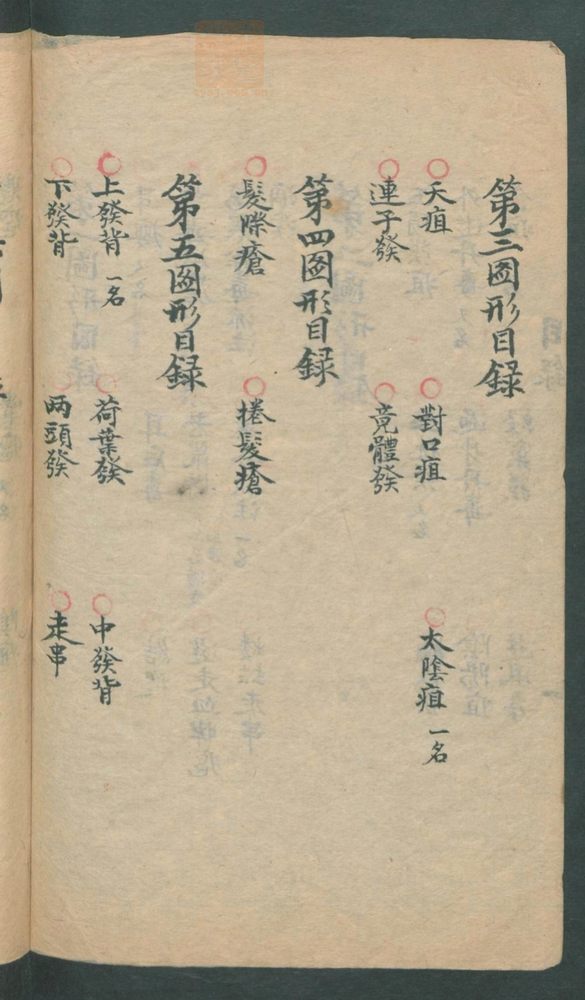 第三圖形目録
○天疽 ○對口疽 ○太陰疽 一名
○連子發 ○竟體發
第四圖形目録
○髮際瘡 ○捲髮瘡
第五圖形目録
○上發背 一名 ○荷葉發 ○中發背
○下發背 ○两頭發 ○走串